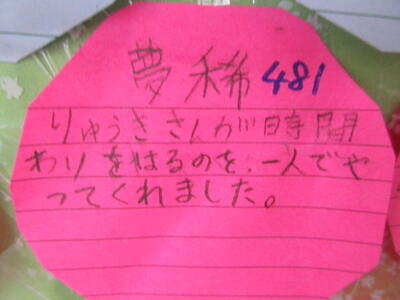 夢稀 481
りゅうきさんが時間
わりをはるのを、一人でや
ってくれました。